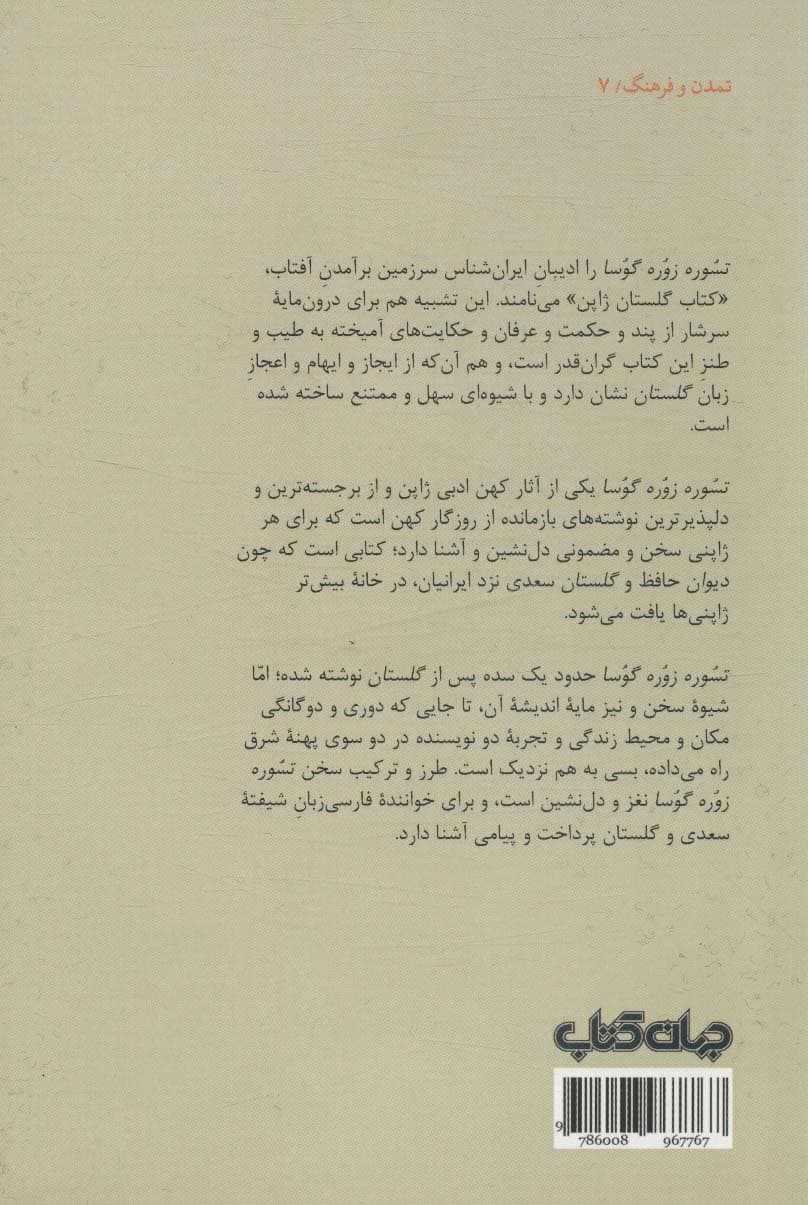 تمدن و فرهنگ / ۷
تسُوره زوُره گوُسا را ادیبانِ ایران‌شناس سرزمین برآمدنِ آفتاب،
«کتاب گلستان ژاپن» می‌نامند. این تشبیه هم برای درون‌مایهٔ
سرشار از پند و حکمت و عرفان و حکایت‌های آمیخته به طیب و
طنزِ این کتاب گران‌قدر است، و هم آن‌که از ایجاز و ایهام و اعجازِ
زبان گلستان نشان دارد و با شیوه‌ای سهل و ممتنع ساخته شده
است.
تسُوره زوُره گوُسا یکی از آثار کهن ادبی ژاپن و از برجسته‌ترین و
دلپذیرترین نوشته‌های بازمانده از روزگار کهن است که برای هر
ژاپنی سخن و مضمونی دل‌نشین و آشنا دارد؛ کتابی است که چون
دیوان حافظ و گلستان سعدی نزد ایرانیان، در خانهٔ بیش‌تر
ژاپنی‌ها یافت می‌شود.
تسُوره زوُره گوُسا حدود یک سده پس از گلستان نوشته شده؛ امّا
شیوهٔ سخن و نیز مایهٔ اندیشهٔ آن، تا جایی که دوری و دوگانگی
مکان و محیط زندگی و تجربهٔ دو نویسنده در دو سوی پهنهٔ شرق
راه می‌داده، بسی به هم نزدیک است. طرز و ترکیب سخن تسُوره
زوُره گوُسا نغز و دل‌نشین است، و برای خوانندهٔ فارسی‌زبانِ شیفتهٔ
سعدی و گلستان پرداخت و پیامی آشنا دارد.
جهان کتاب
9 786008 967767